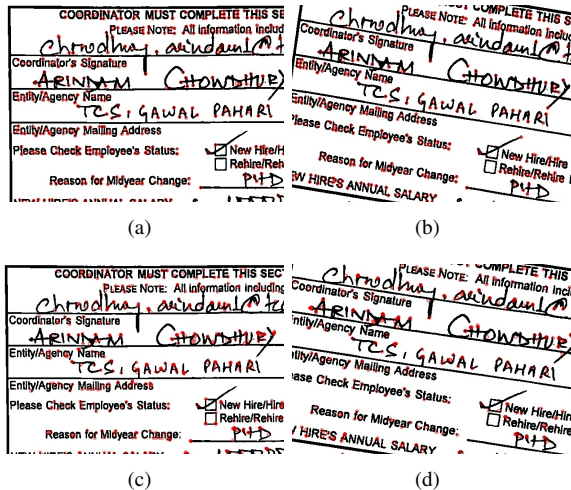 COORDINATOR MUST COMPLETE THIS S
PLEASE NOTE: All information includ
Chrowdhury.arindam1@t
Coordinator's Signature
ARINDAM CHOWDHURY
Entity/Agency Name
TCS, GAWAL PAHARI
Entity/Agency Mailing Address
Please Check Employee's Status: New Hire/H
Rehire/Reh
Reason for Midyear Change: PHD
NEW HIRE'S ANNUAL SALARY
(a)
COMPLETE THIS
PLEASE NOTE: All information includ
Chrowdhury.arindam1@t
Coordinator's Signature
ARINDAM CHOWDHURY
Entity/Agency Name
TCS, GAWAL PAHARI
Entity/Agency Mailing Address
Please Check Employee's Status: New Hire/Hi
Rehire/Rehire
Reason for Midyear Change: PHD
EW HIRE'S ANNUAL SALARY
(b)
COORDINATOR MUST COMPLETE THIS SEC
PLEASE NOTE: All information including
Chrowdhury.arindam1@tc
Coordinator's Signature
ARINDAM CHOWDHURY
Entity/Agency Name
TCS, GAWAL PAHARI
Entity/Agency Mailing Address
Please Check Employee's Status: New Hire/Hire
Rehire/Rehir
Reason for Midyear Change: PHD
NEW HIRE'S ANNUAL SALARY
(c)
COMPLETE THIS
PLEASE NOTE: All information incl
Chrowdhury.arindam1@t
Coordinator's Signature
ARINDAM CHOWDHUR
ntity/Agency Name
TCS, GAWAL PAHARI
ntity/Agency Mailing Address
ase Check Employee's Status: New Hire/Hire
Rehire/Rehir
Reason for Midyear Change: PHD
HIRE'S ANNUAL SALARY
(d)